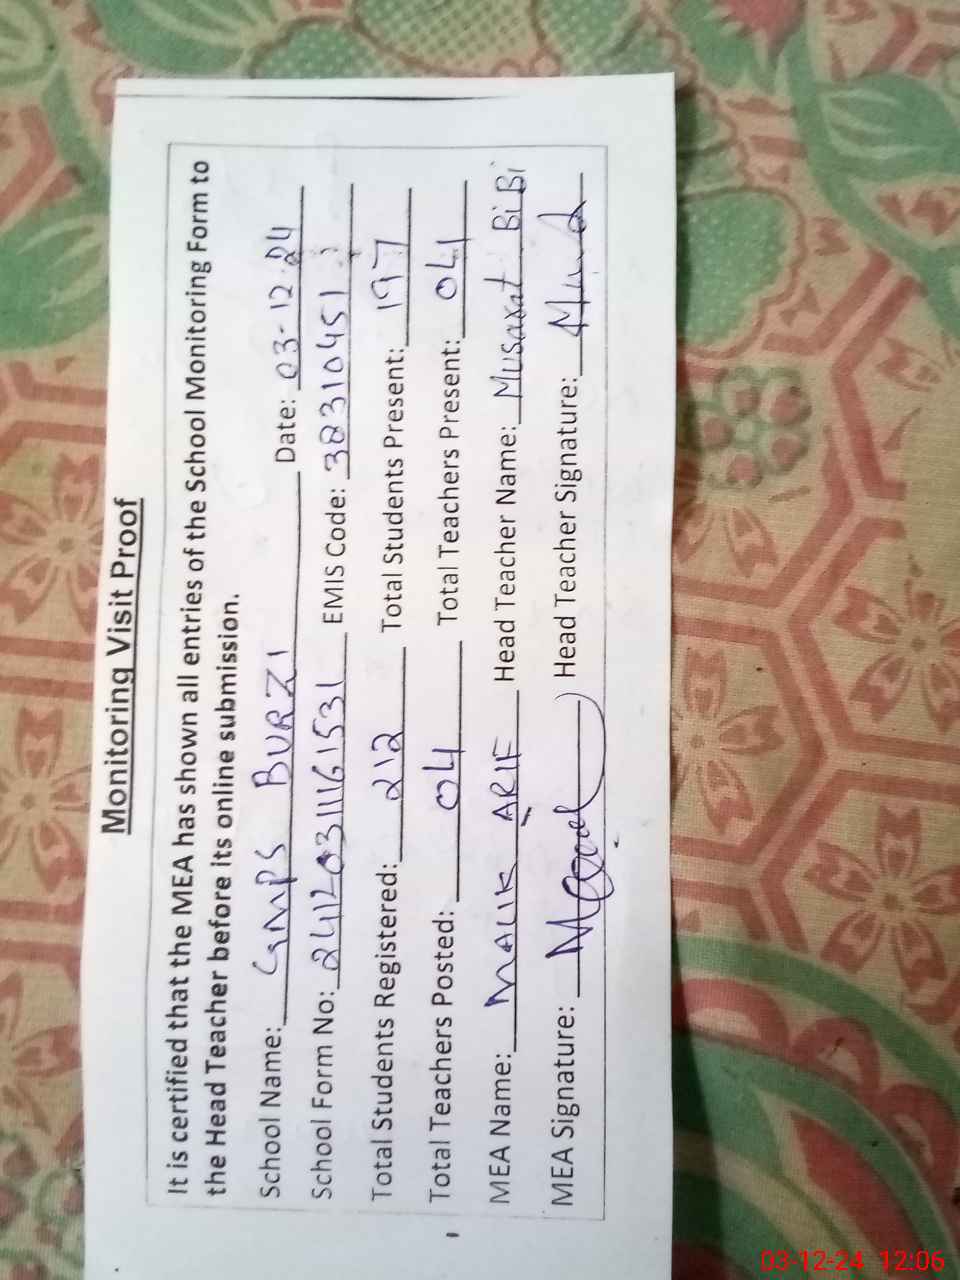 Monitoring Visit Proof
It is certified that the MEA has shown all entries of the School Monitoring Form to
the Head Teacher before its online submission.
School Name: GMPS BURZI Date: 03-12-24
School Form No: 24120311161531 EMIS Code: 38310451
Total Students Registered: 212 Total Students Present: 197
Total Teachers Posted: 04 Total Teachers Present: 04
MEA Name: MALIK ARIF Head Teacher Name: Musarat BiBi
MEA Signature: Head Teacher Signature:
03-12-24 12:06